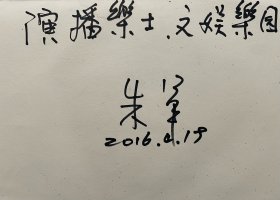 演播樂士.文娛樂園
朱军
2016.4.19